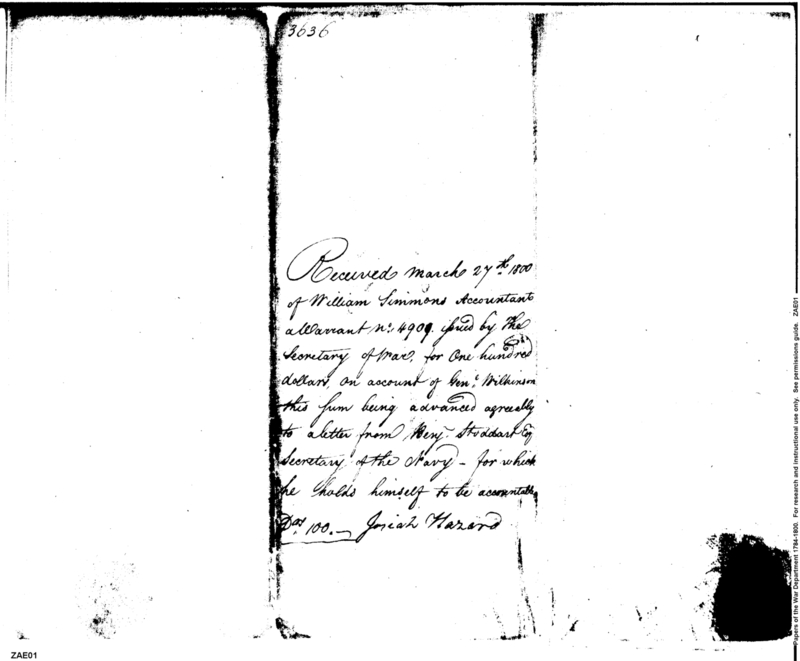 3636
Received March 27th 1800
of William Simmons Accountant
a Warrant No. 4909. issued by The
Secretary of War, for One hundred
dollars, on account of Genl. Wilkinson
this sum being advanced agreeably
to a letter from Benj. Stoddart Esq
Secretary of the Navy - for which
he holds himself to be accountable
Dars 100.- Josiah Hazard
ZAE01
Papers of the War Department 1784-1800. For research and instructional use only. See permissions guide. ZAE01